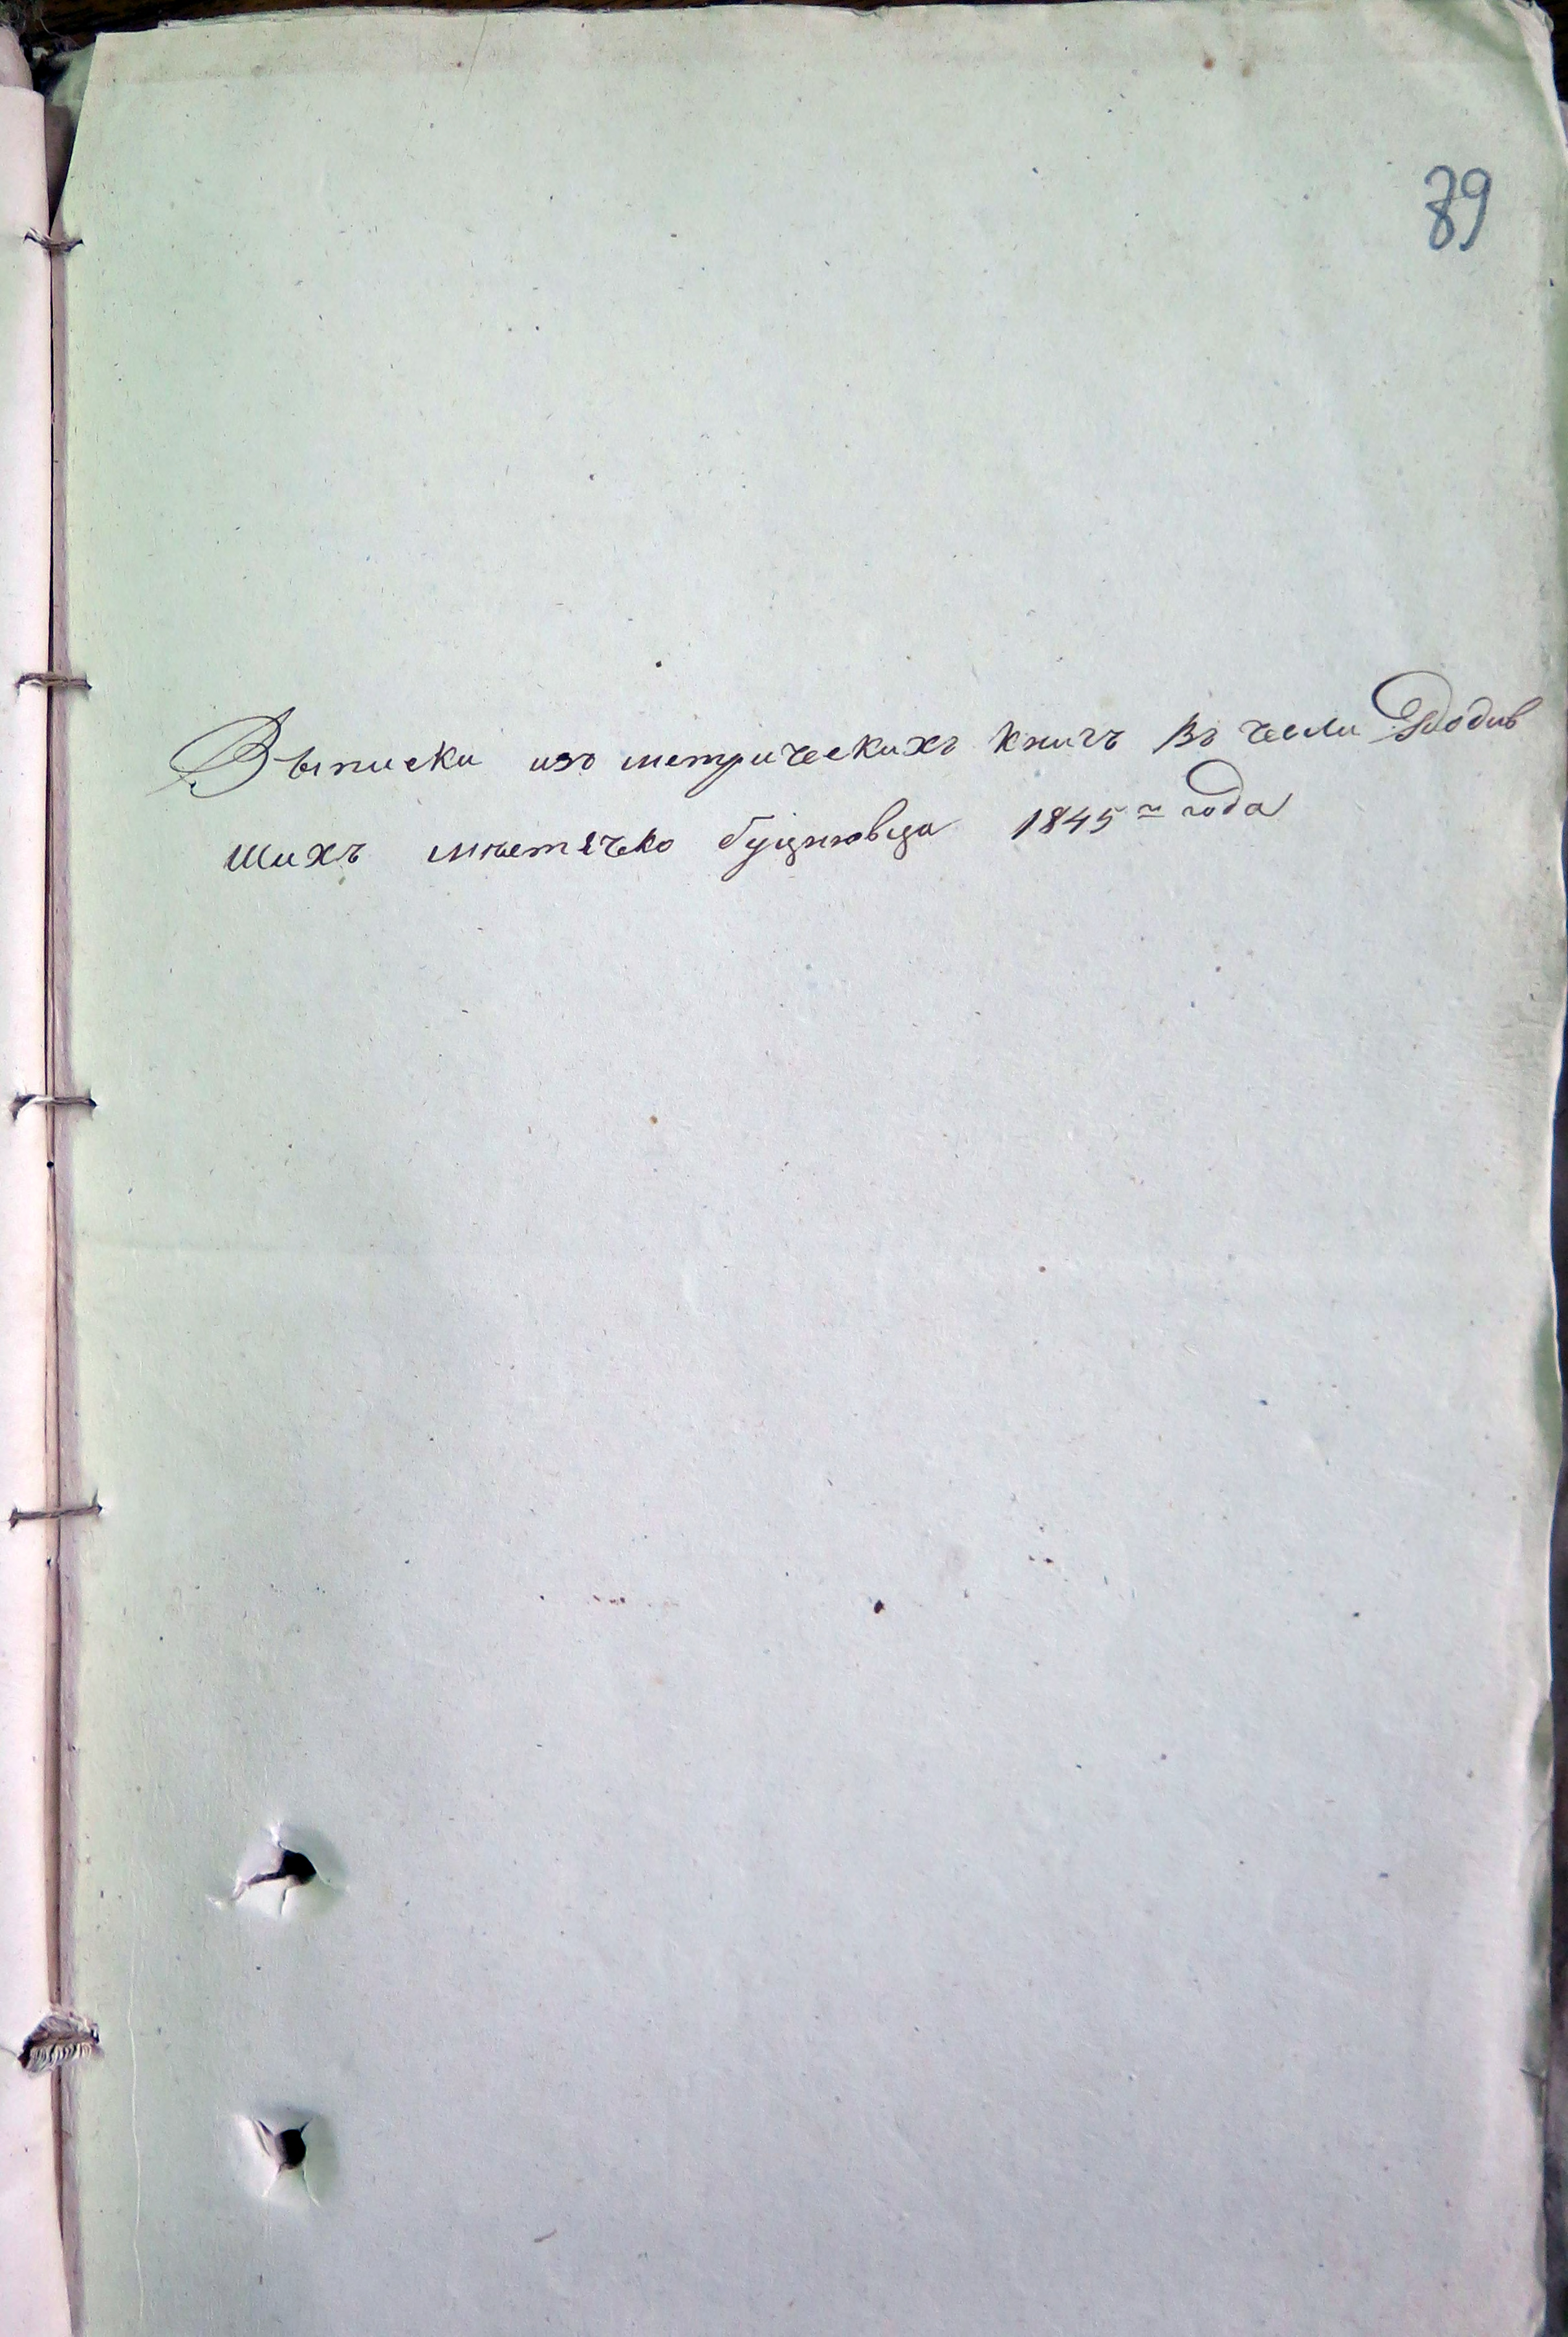 89
Выписки изъ метрическихъ книгъ въ чесли Родив
шихъ мѣстечко буцнювца 1845 го года